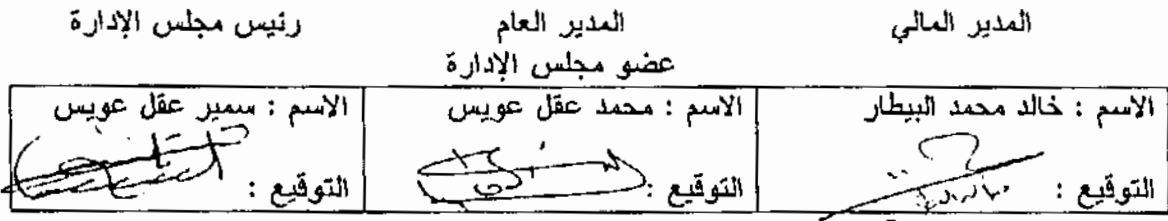 المدير المالي المدير العام رئيس مجلس الإدارة
عضو مجلس الإدارة
الاسم : خالد محمد البيطار الاسم : محمد عقل عويس الاسم : سمير عقل عويس
التوقيع : التوقيع : التوقيع :